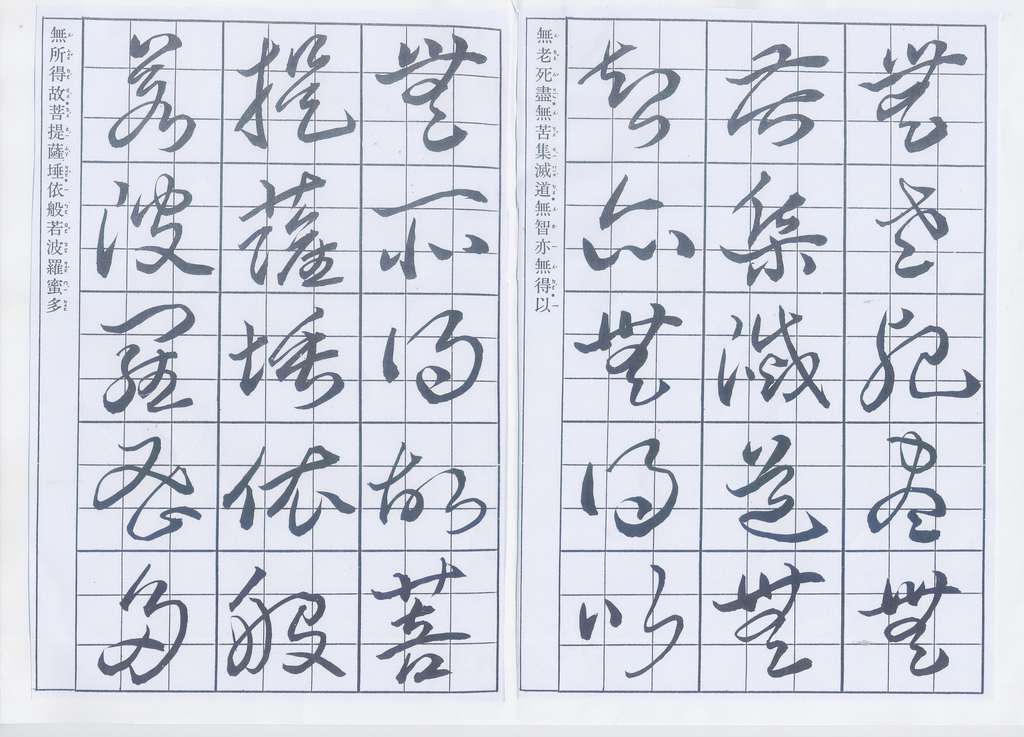 無老死盡無
苦集滅道無
智亦無得以
無老死盡無苦集滅道無智亦無得以
無所得故菩
提薩埵依般
若波羅蜜多
無所得故菩提薩埵依般若波羅蜜多